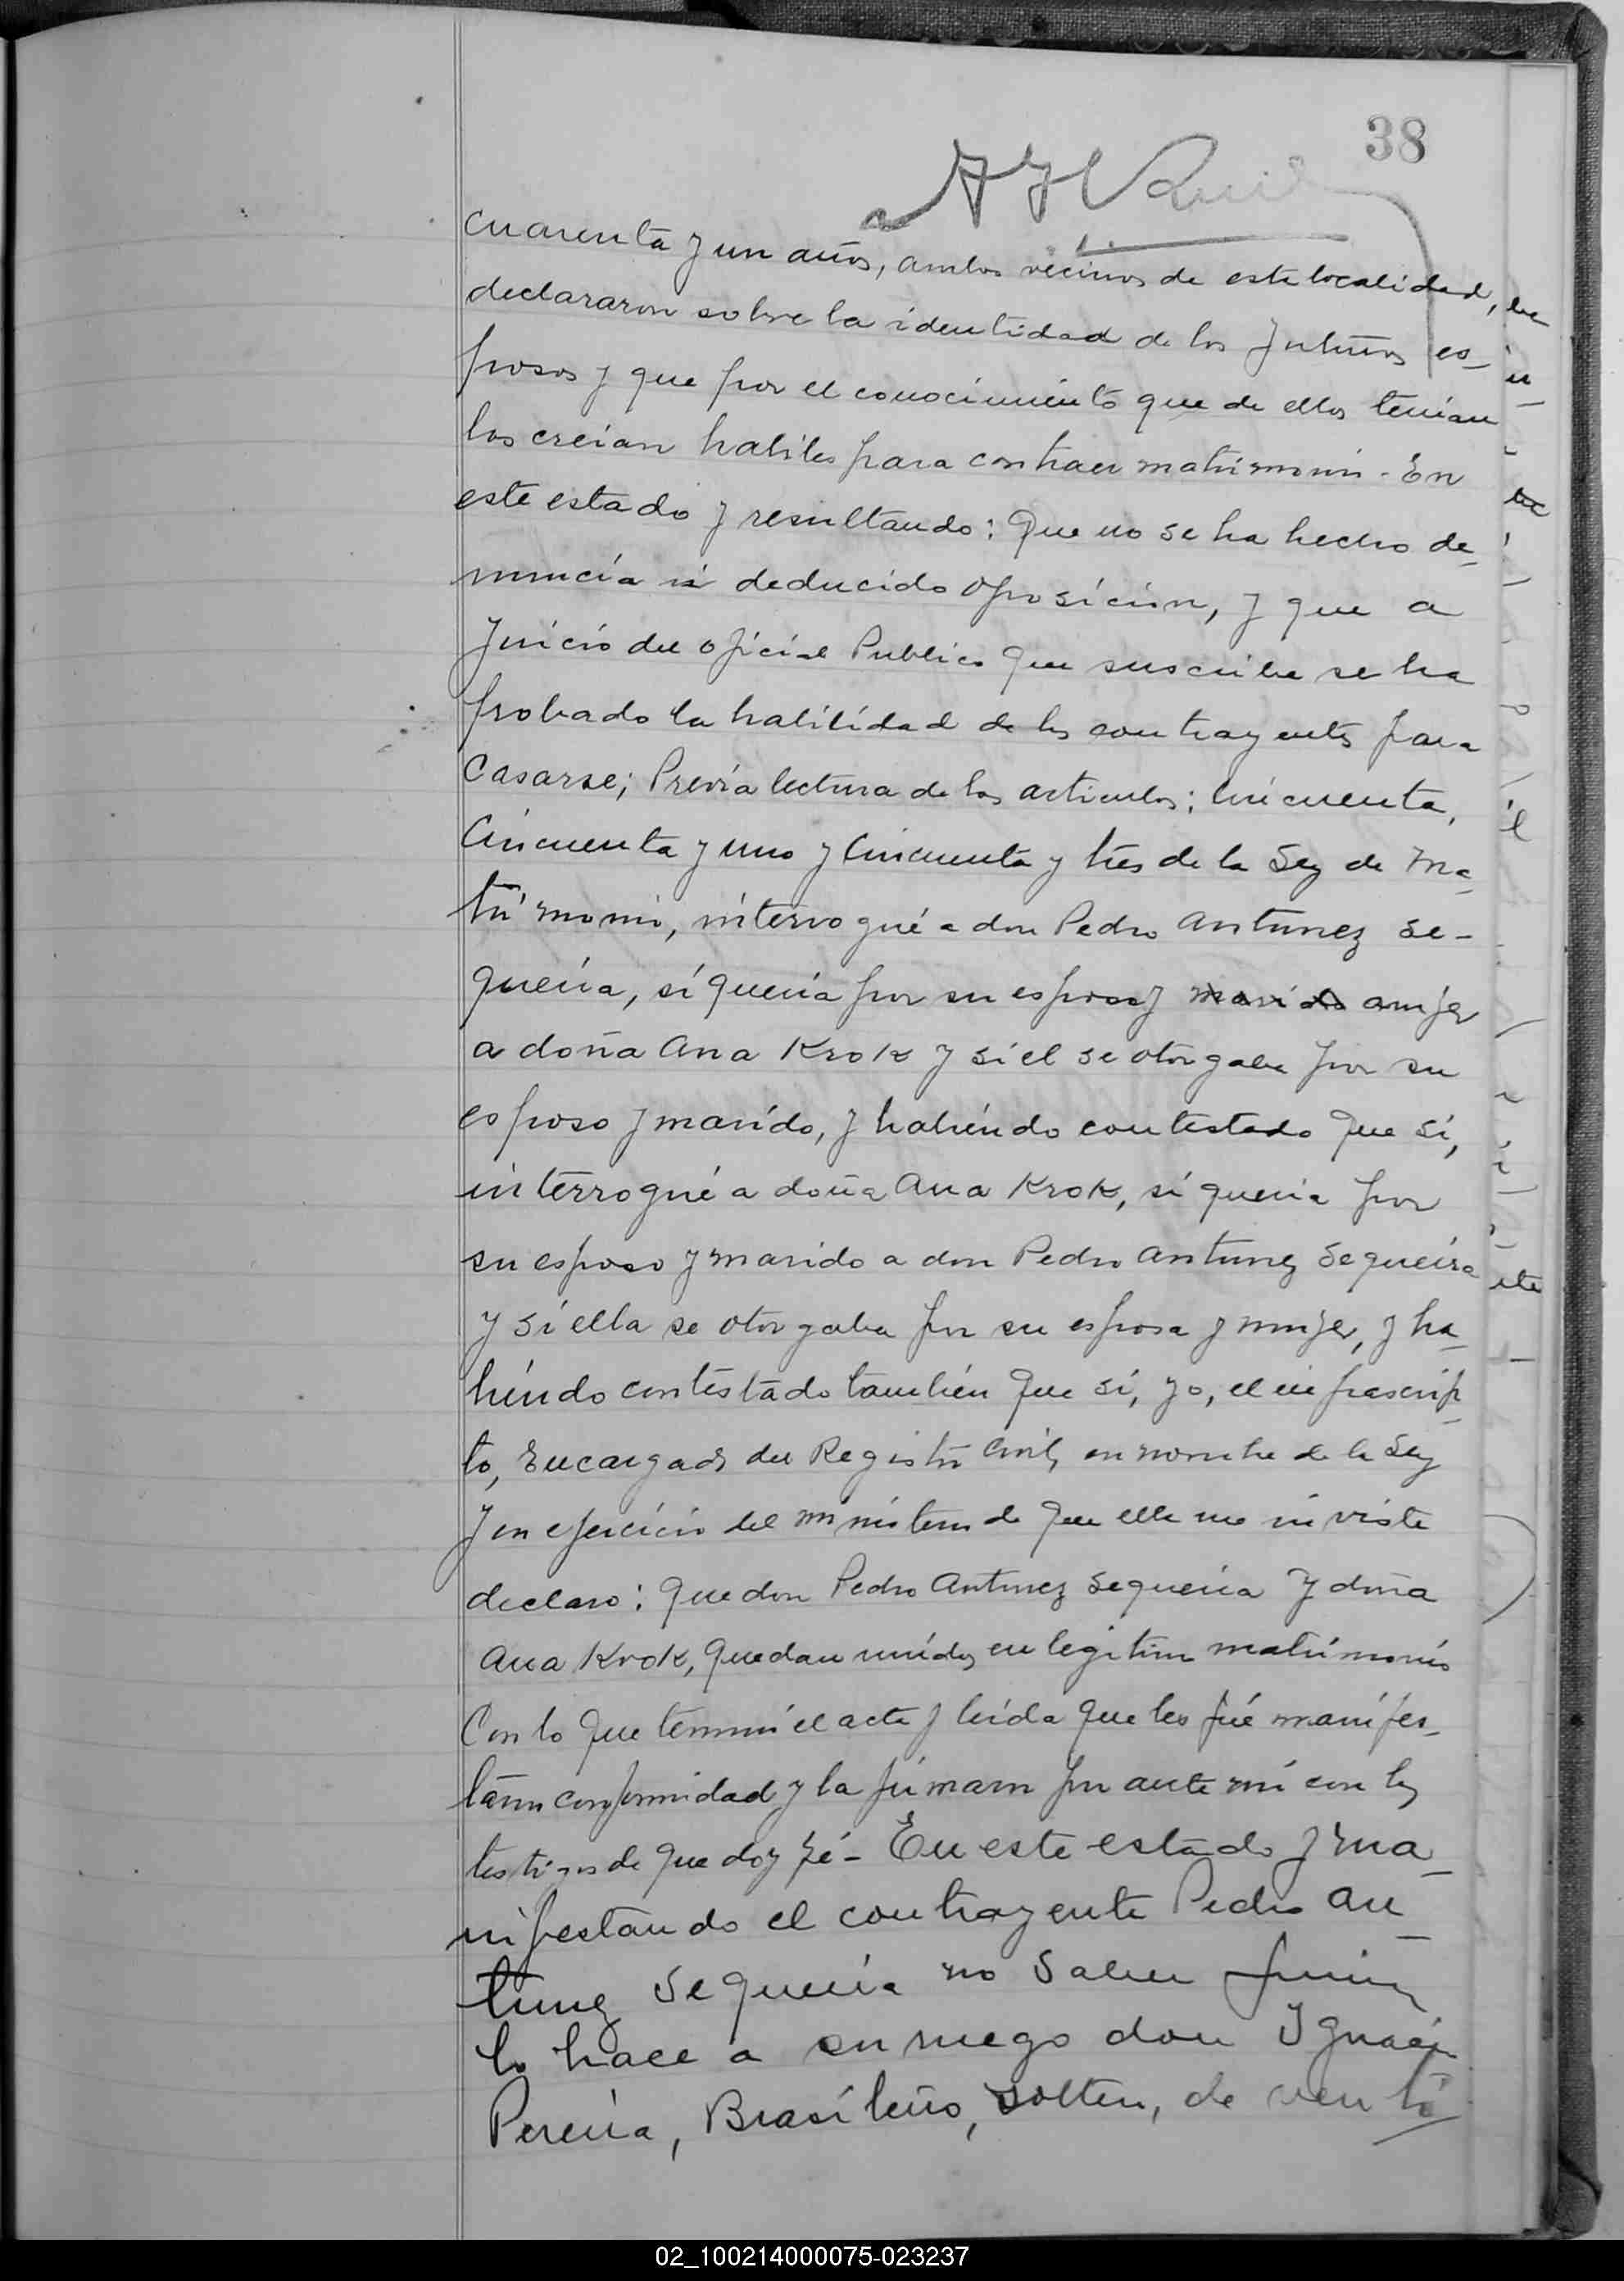 38
cuarenta y un años, ambos vecinos de esta localidad,
declararon sobre la identidad de los futuros es-
posos y que por el conocimiento que de ellos tenian
los creian habiles para contraer matrimonio. En
este estado y resultando: Que no se ha hecho de-
nuncia ni deducido oposición, y que a
juicio del oficial Publico que suscribe se ha
probado la habilidad de los contrayentes para
casarse; Previa lectura de los articulos; cincuenta,
Cincuenta y uno y Cincuenta y tres de la Ley de Ma-
trimonio, interrogué a don Pedro Antunez Se-
queira, si queria por su esposa y marido mujer
a doña Ana Krok y si el se otorgaba por su
esposo y marido, y habiendo contestado que si,
interrogué a doña Ana Krok, si queria por
su esposo y marido a don Pedro Antunez Sequeira
y si ella se otorgaba por su esposa y mujer, y ha-
biendo contestado tambien que si, yo, el infrascrip-
to, Encargado del Registro Civil, en nombre de la Ley
y en ejercicio del ministerio de que ella me inviste
declaro: Que don Pedro Antunez Sequeira y doña
Ana Krok, quedan unidos en legitimo matrimonio
Con lo que terminó el acta y leida que les fué manifes-
taron conformidad y la firmaron por ante mi con los
testigos de que doy fé - En este estado y ma-
nifestando el contrayente Pedro An-
tunez Sequeira no saber firmar
lo hace a su ruego don Ignacio
Pereira, Brasileño, soltero, de vein ti
02_100214000075-023237